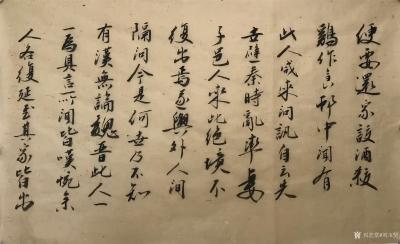 便要還家設酒殺
雞作食邨中聞有
此人咸來問訊自云先
世避秦時亂率妻
子邑人來此絕境不
復出焉遂與外人間
隔問今是何世乃不知
有漢無論魏晉此人一
一爲具言所聞皆嘆惋余
人各復延至其家皆出